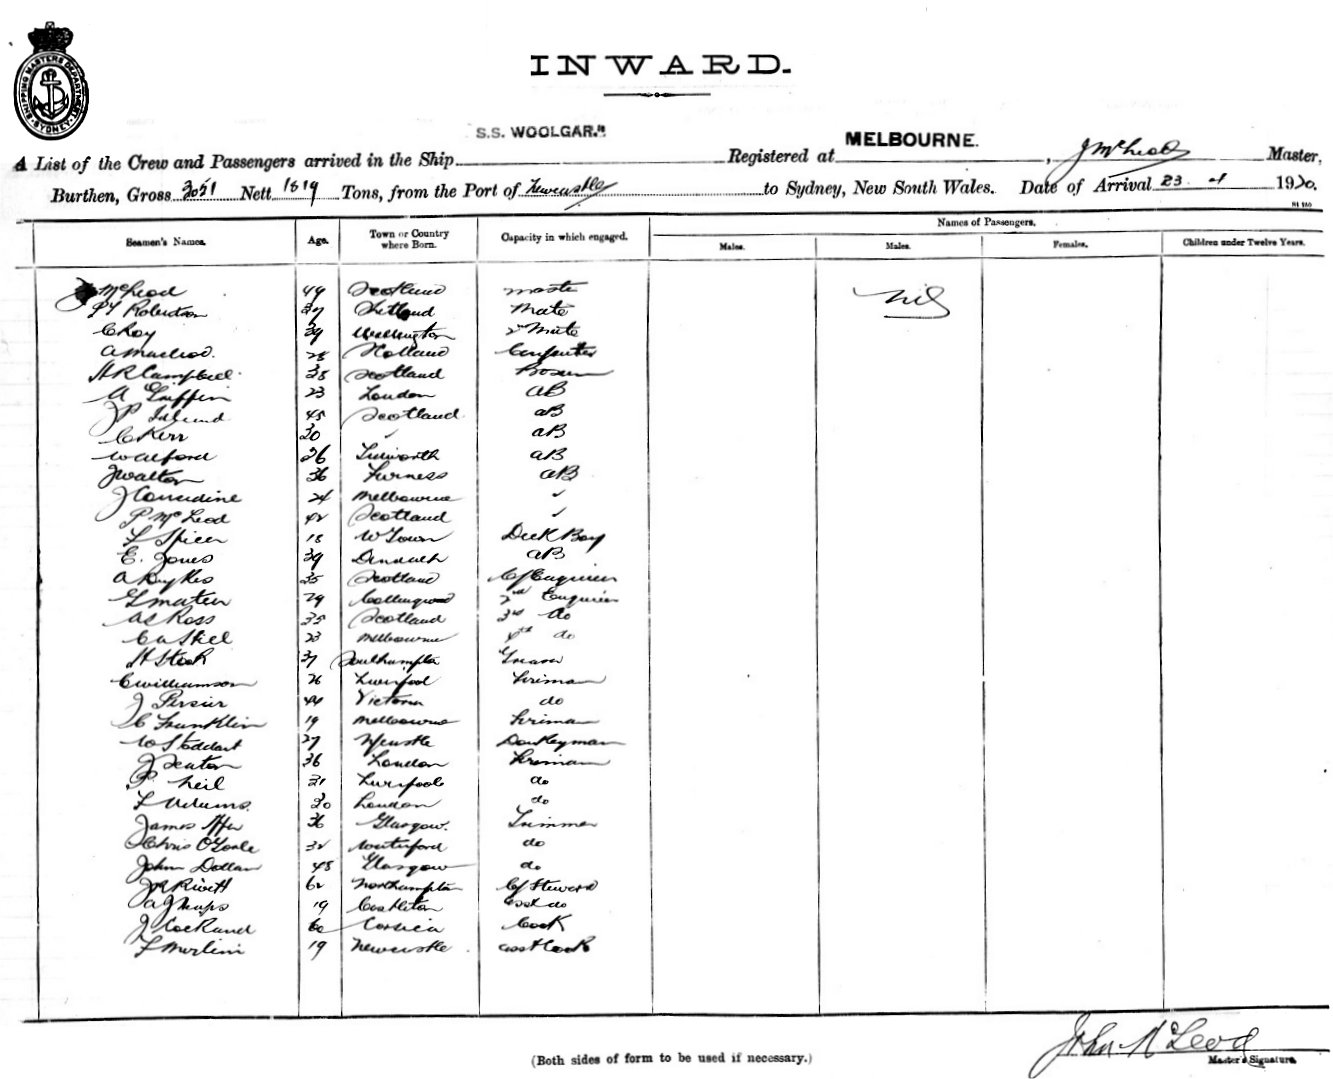 SHIPPING MASTERS DEPARTMENT SYDNEY
INWARD.
S.S. WOOLGAR."
MELBOURNE.
A List of the Crew and Passengers arrived in the Ship Registered at , J McLeod Master,
Burthen, Gross 3051 Nett 1819 Tons, from the Port of Newcastle to Sydney, New South Wales. Date of Arrival 23 1920.
Names of Passengers.
Seamen's Names. Age. Town or Country where Born. Capacity in which engaged. Males. Males. Females. Children under Twelve Years.
J McLeod 49 Scotland Master nil
Robertson 37 Shetland Mate
C Roy 39 Wellington 2nd Mate
A Macleod. 28 Holland Carpenter
H R Campbell 38 Scotland Bosun
A Griffin 23 London AB
J P 45 Scotland AB
C Kerr 30 ✓ AB
W Alford 26 AB
J Walton 36 Furness AB
J Considine 24 Melbourne ✓
P McLeod 42 Scotland ✓
L Spicer 18 W Town Deck Boy
E. Jones 39 AB
A Dykes 35 Scotland Cf Engineer
29 Collingwood 2nd Engineer
A S Ross 35 Scotland 3rd do
23 Melbourne 4th do
H Stock 37 Southampton Greaser
C Williamson 26 Liverpool Fireman
J 44 Victoria do
C Franklin 19 Melbourne Fireman
W Stoddart 27 N'castle Donkeyman
J Seaton 36 London Fireman
P Neil 31 Liverpool do
30 London do
James 36 Glasgow. Trimmer
Chris O'Toole 32 Waterford do
John Dollan 48 Glasgow do
Rivett 62 Northampton Cf Steward
19 Castleton Asst do
J 60 Corsica Cook
F Merlini 19 Newcastle Asst Cook
John McLeod
Master's Signature.
(Both sides of form to be used if necessary.)